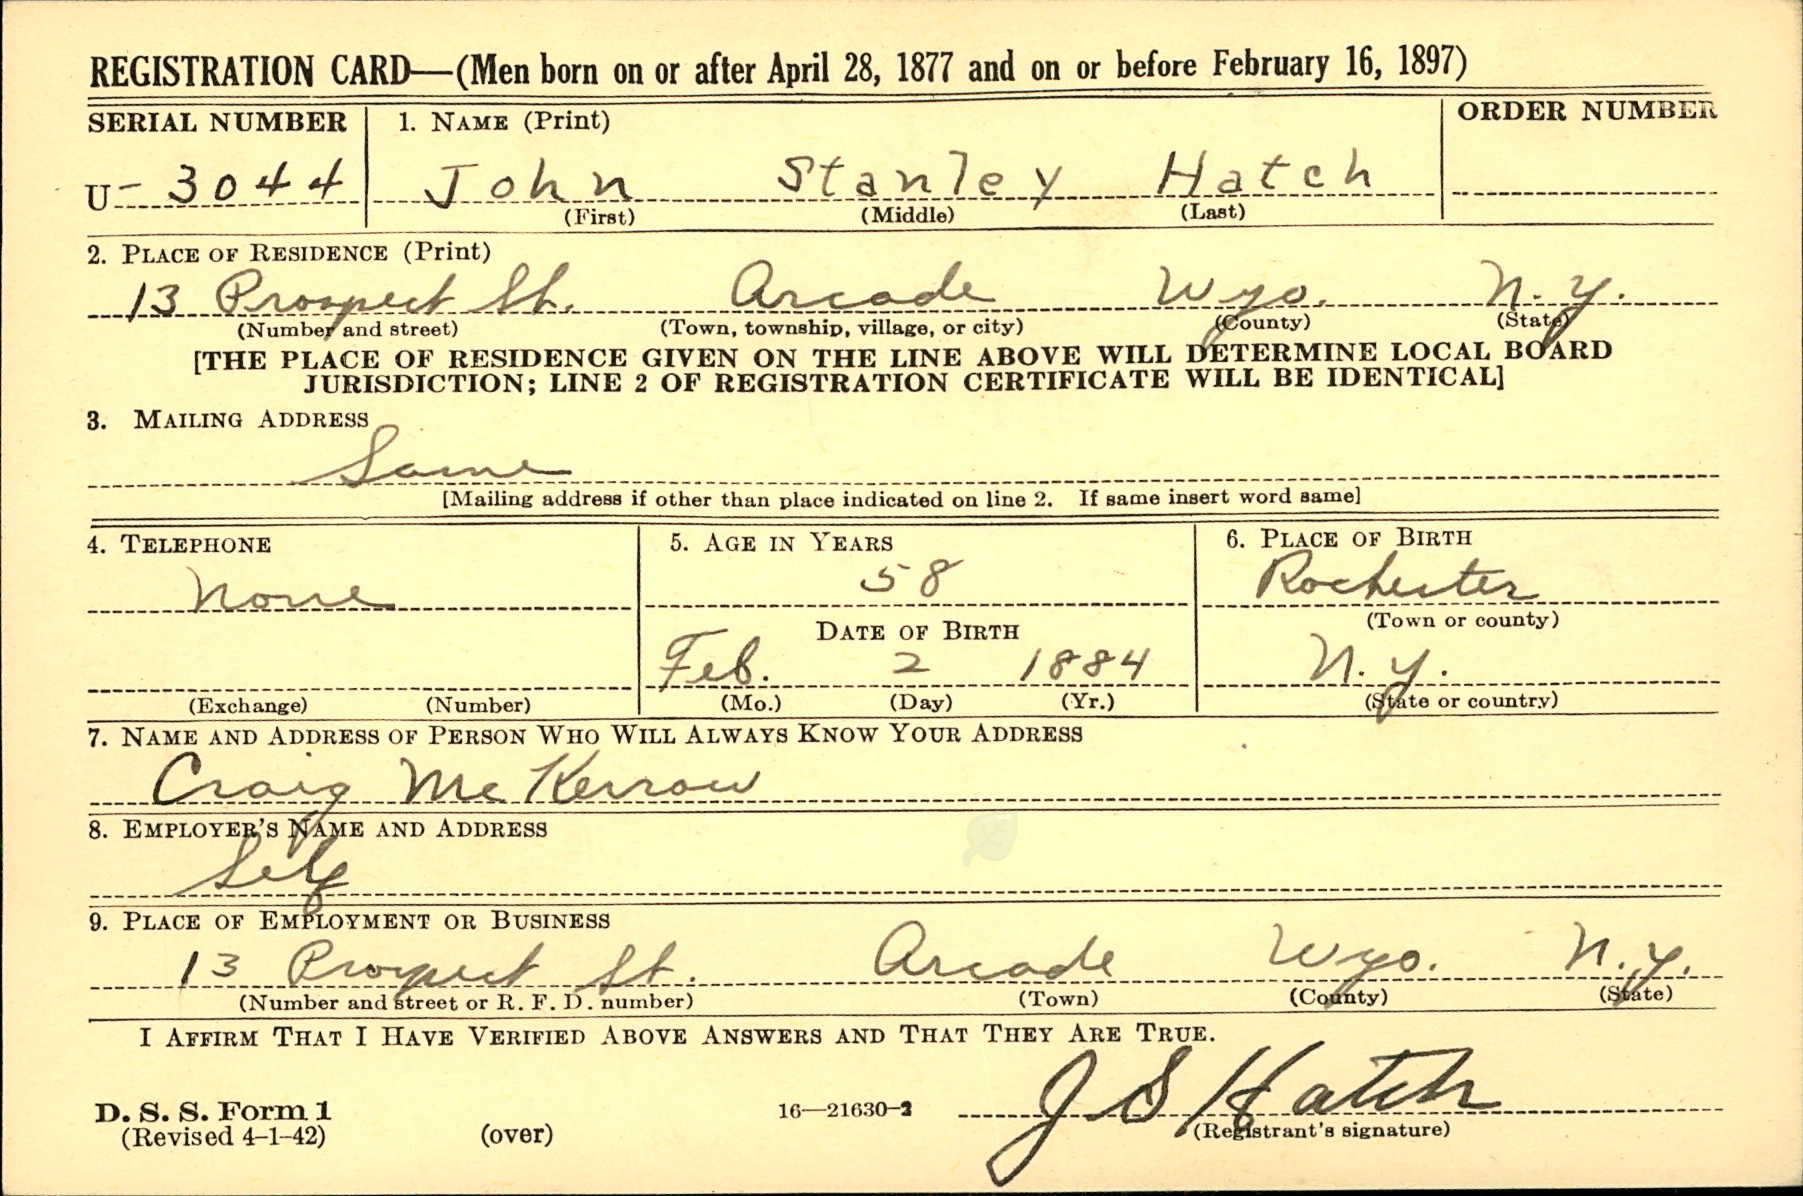 REGISTRATION CARD—(Men born on or after April 28, 1877 and on or before February 16, 1897)
SERIAL NUMBER 1. NAME (Print) ORDER NUMBER
U-3044 John Stanley Hatch
(First) (Middle) (Last)
2. PLACE OF RESIDENCE (Print)
13 Prospect St. Arcade Wyo. N.Y.
(Number and street) (Town, township, village, or city) (County) (State)
[THE PLACE OF RESIDENCE GIVEN ON THE LINE ABOVE WILL DETERMINE LOCAL BOARD
JURISDICTION; LINE 2 OF REGISTRATION CERTIFICATE WILL BE IDENTICAL]
3. MAILING ADDRESS
Same
[Mailing address if other than place indicated on line 2. If same insert word same]
4. TELEPHONE 5. AGE IN YEARS 6. PLACE OF BIRTH
None 58 Rochester
DATE OF BIRTH (Town or county)
Feb. 2 1884 N.Y.
(Exchange) (Number) (Mo.) (Day) (Yr.) (State or country)
7. NAME AND ADDRESS OF PERSON WHO WILL ALWAYS KNOW YOUR ADDRESS
Craig McKerrow
8. EMPLOYER'S NAME AND ADDRESS
Self
9. PLACE OF EMPLOYMENT OR BUSINESS
13 Prospect St. Arcade Wyo. N.Y.
(Number and street or R. F. D. number) (Town) (County) (State)
I AFFIRM THAT I HAVE VERIFIED ABOVE ANSWERS AND THAT THEY ARE TRUE.
J S Hatch
D. S. S. Form 1 16—21630-2
(Revised 4-1-42) (over) (Registrant's signature)